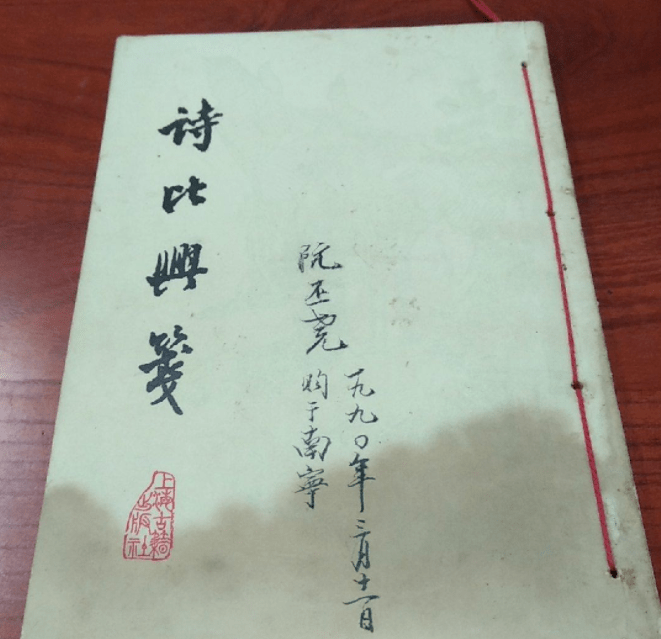 詩比興箋
阮丕尧 购于南寧
一九九〇年三月十一日
上海古籍出版社